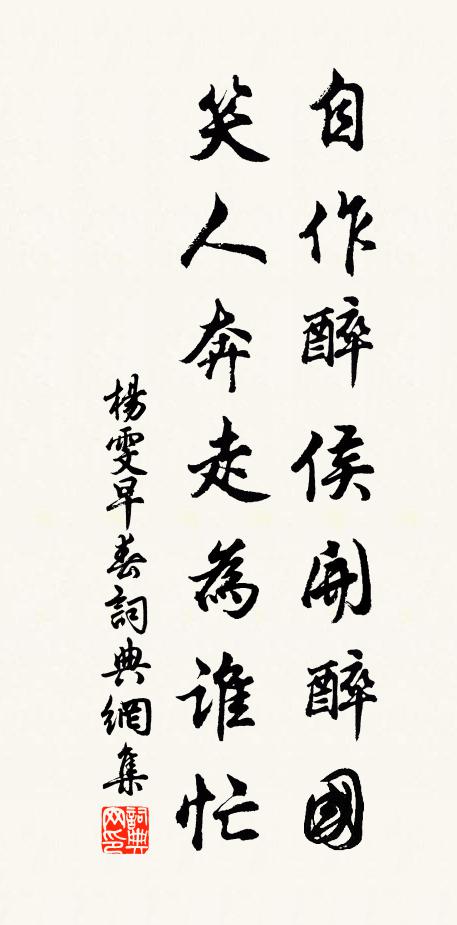 自作醉侯開醉國
笑人奔走為誰忙
楊雯早春詞典網集
詞典網印